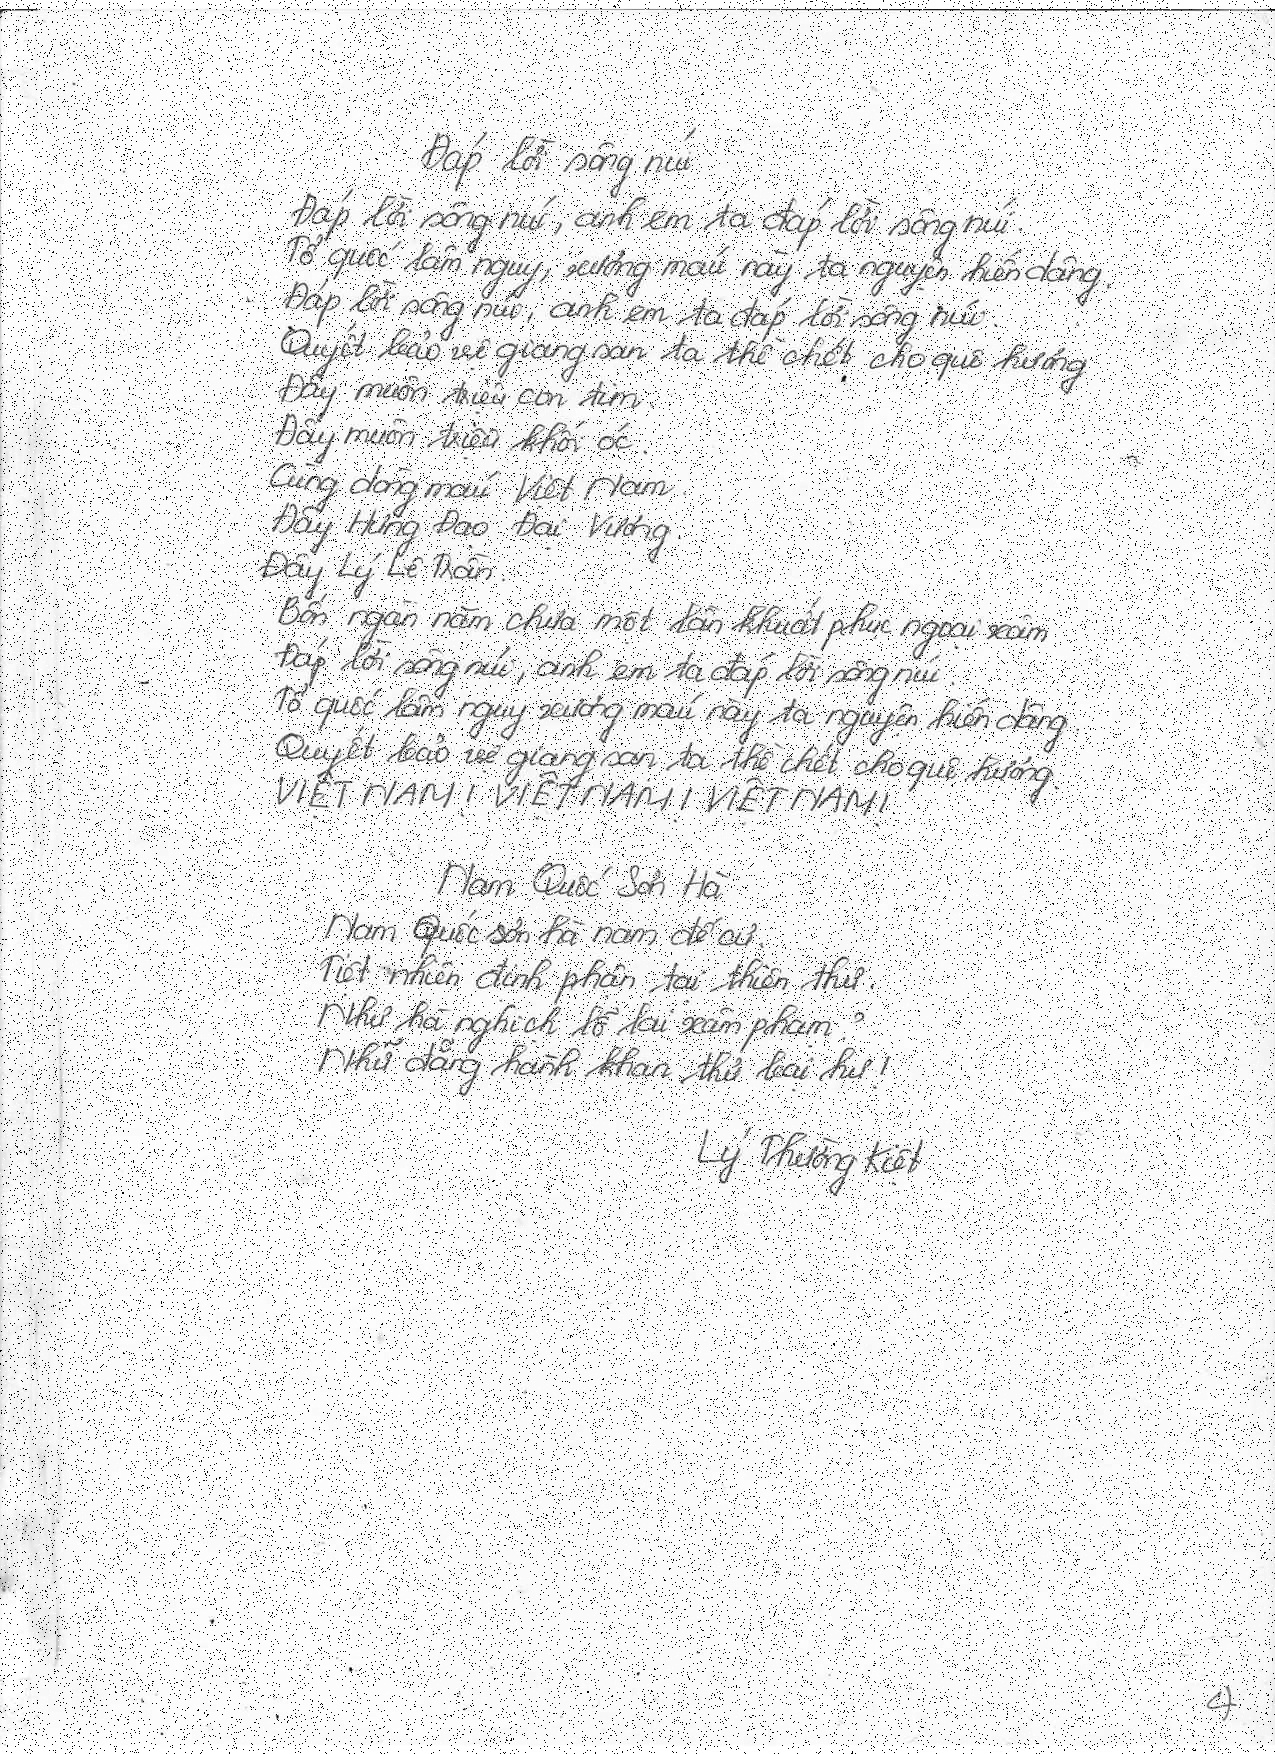 Đáp lời sông núi
Đáp lời sông núi, anh em ta đáp lời sông núi.
Tổ quốc lâm nguy, xương máu này ta nguyện hiến dâng.
Đáp lời sông núi, anh em ta đáp lời sông núi.
Quyết bảo vệ giang san ta thề chết cho quê hương
Đây muôn triệu con tim.
Đây muôn triệu khối óc.
Cùng dòng máu Việt Nam.
Đây Hưng Đạo Đại Vương.
Đây Lý Lê Trần.
Bốn ngàn năm chưa một lần khuất phục ngoại xâm
Đáp lời sông núi, anh em ta đáp lời sông núi.
Tổ quốc lâm nguy xương máu này ta nguyện hiến dâng
Quyết bảo vệ giang san ta thề chết cho quê hương.
VIỆT NAM! VIỆT NAM! VIỆT NAM!
Nam Quốc Sơn Hà
Nam Quốc sơn hà nam đế cư.
Tiệt nhiên định phận tại thiên thư.
Như hà nghịch lỗ lai xâm phạm?
Nhữ đẳng hành khan thủ bại hư!
Lý Thường Kiệt
4